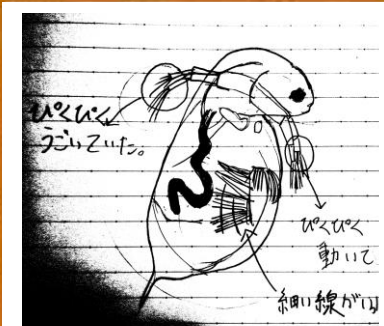 ぴくぴく
うごいていた。
ぴくぴく
動いて
細い線がい